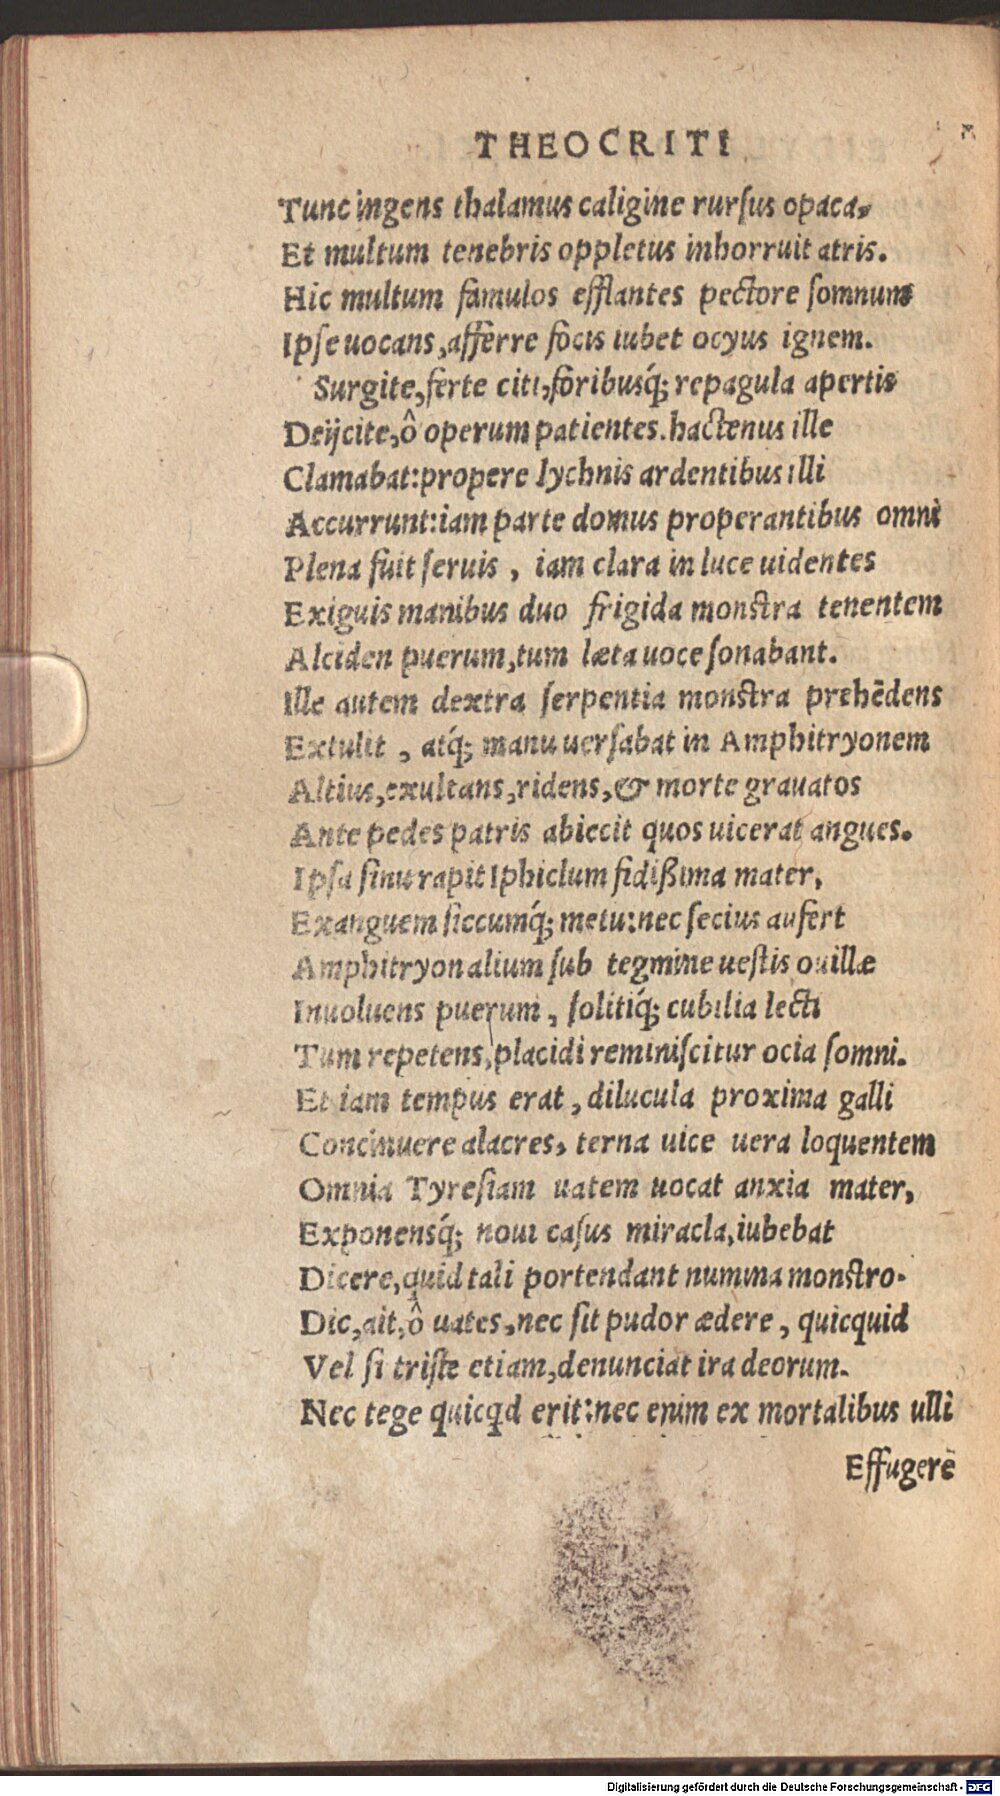 THEOCRITI
Tunc ingens thalamus caligine rursus opaca,
Et multum tenebris oppletus inhorruit atris.
Hic multum famulos efflantes pectore somnum
Ipse uocans, afferre focis iubet ocyus ignem.
Surgite, ferte citi, foribusq́; repagula apertis
Deijcite, ô operum patientes. hactenus ille
Clamabat: propere lychnis ardentibus illi
Accurrunt: iam parte domus properantibus omni
Plena fuit seruis, iam clara in luce uidentes
Exiguis manibus duo frigida monstra tenentem
Alciden puerum, tum læta uoce sonabant.
Ille autem dextra serpentia monstra prehēdens
Extulit, atq́; manu uersabat in Amphitryonem
Altius, exultans, ridens, & morte grauatos
Ante pedes patris abiecit quos uicerat angues.
Ipsa sinu rapit Iphiclum fidißima mater,
Exanguem siccumq́; metu: nec secius aufert
Amphitryon alium sub tegmine uestis ouillæ
Inuoluens puerum, solitiq́; cubilia lecti
Tum repetens, placidi reminiscitur ocia somni.
Et iam tempus erat, dilucula proxima galli
Concinuere alacres, terna uice uera loquentem
Omnia Tyresiam uatem uocat anxia mater,
Exponensq́; noui casus miracla, iubebat
Dicere, quid tali portendant numina monstro.
Dic, ait, ô uates, nec sit pudor ædere, quicquid
Vel si triste etiam, denunciat ira deorum.
Nec tege quicqd erit: nec enim ex mortalibus ulli
Effugerē
Digitalisierung gefördert durch die Deutsche Forschungsgemeinschaft - DFG